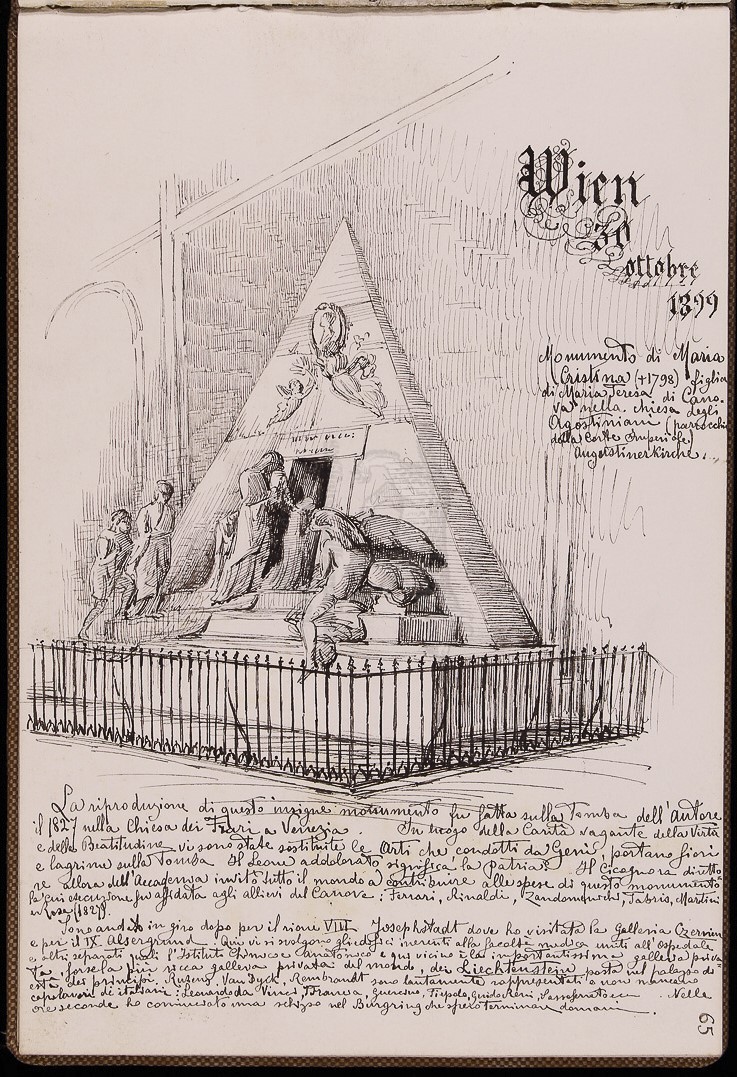 Wien
30
ottobre
1899
Monumento di Maria
Cristina (+1798) figlia
di Maria Teresa di Cano-
va nella chiesa degli
Agostiniani (parrocchia
della Corte Imperiale)
Augustinerkirche.
La riproduzione di questo insigne monumento fu fatta sulla Tomba dell'autore
il 1827 nella Chiesa dei Frari a Venezia. In luogo della Carità vagante della Virtù
e della Beatitudine vi sono state sostituite le Arti che condotti da Geni, portano fiori
e lagrime sulla Tomba. Il Leone addolorato significa la Patria. Il Cicognara diretto-
re allora dell'Accademia invitò tutto il mondo a contribuire alle spese di questo monumento
la cui esecuzione fu affidata agli allievi del Canova: Ferrari, Rinaldi, Zandomenichi, Fabris, Martini
e Rosa (1827).
Sono andato in giro dopo per il rione VIII Josephstadt dove ho visitata la Galleria Czernin
e per il IX Alsergrund. Qui vi si svolgono gli edifici inerenti alla facoltà medica uniti all'ospedale
e altri separati quali l'Istituto Chimico e anatomico e qui vicino è la importantissima galleria priva-
ta, forse la più ricca galleria privata del mondo, dei Liechtenstein posta nel palazzo di
dei principi. Rubens, Van Dyck, Rembrandt sono lautamente rappresentati e non mancano
capolavori di italiani: Leonardo da Vinci, Francia, Guercino, Tiepolo, Guido Reni, Sassoferrato ecc. Nelle
ore seconde ho cominciato uno schizzo nel Burgring che spero terminare domani.
65